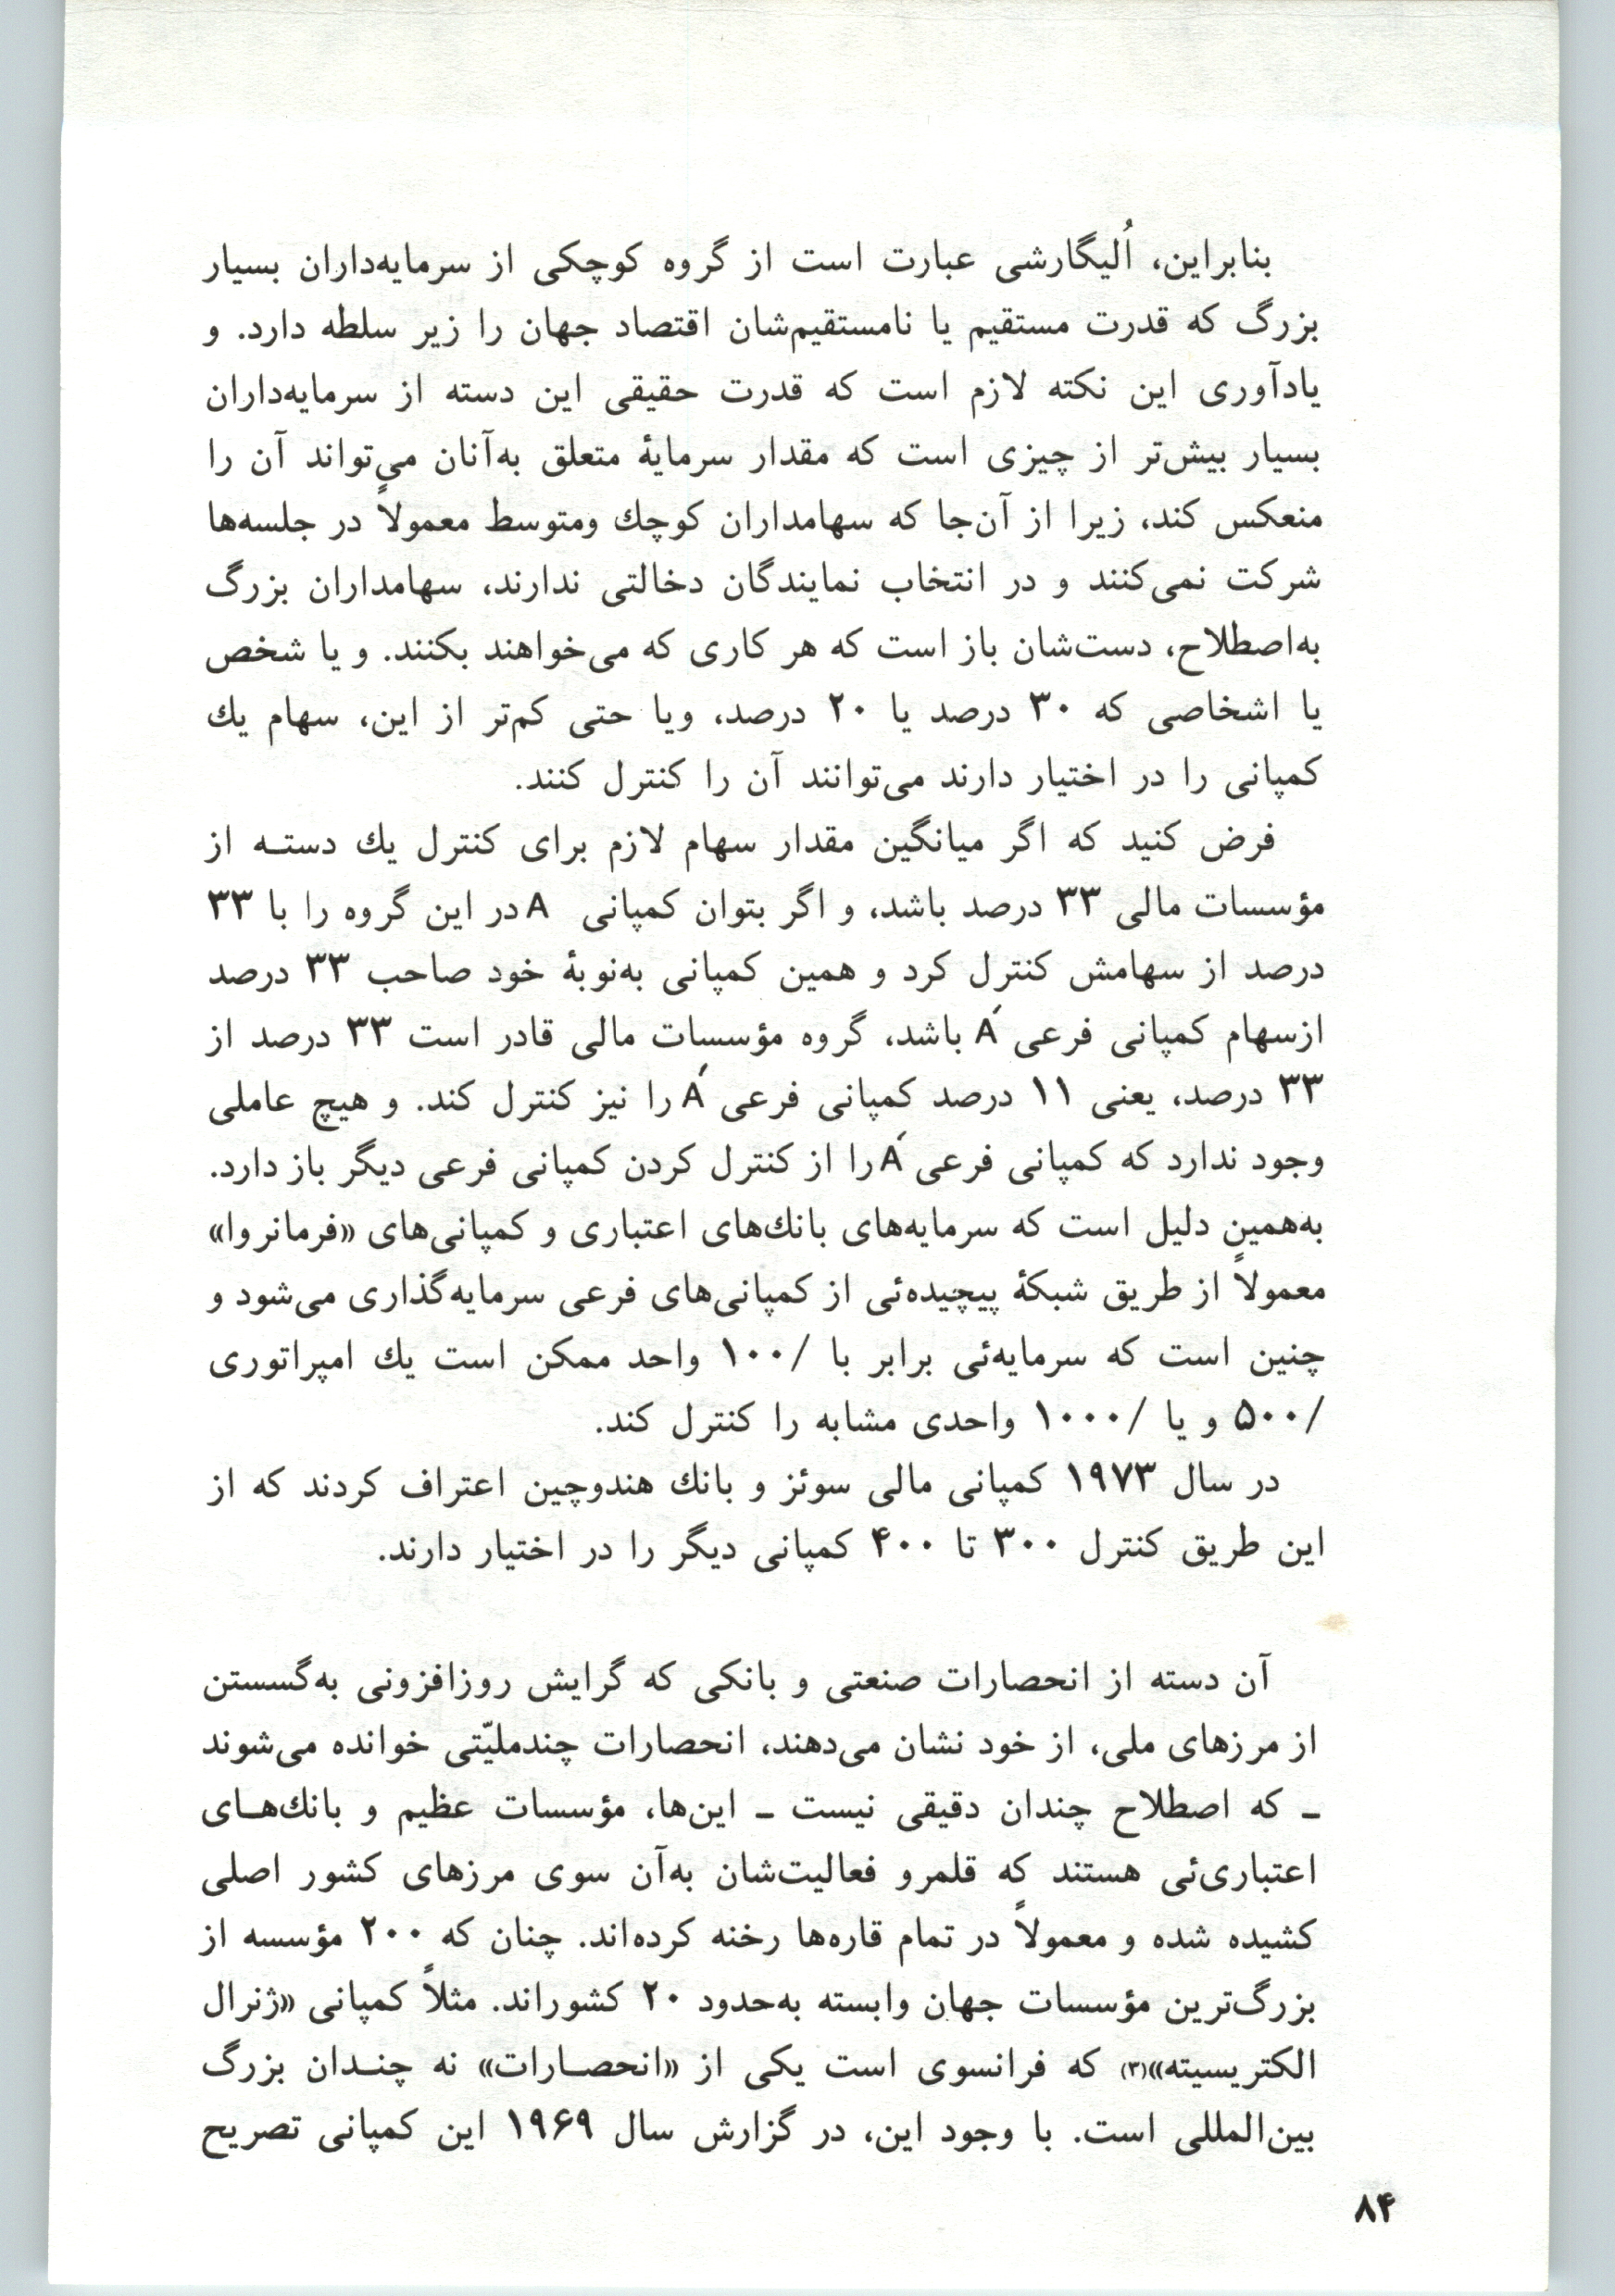 بنابراین، اُلیگارشی عبارت است از گروه کوچکی از سرمایه‌داران بسیار
بزرگ که قدرت مستقیم یا نامستقیم‌شان اقتصاد جهان را زیر سلطه دارد. و
یادآوری این نکته لازم است که قدرت حقیقی این دسته از سرمایه‌داران
بسیار بیش‌تر از چیزی است که مقدار سرمایهٔ متعلق به‌آنان می‌تواند آن را
منعکس کند، زیرا از آن‌جا که سهامداران کوچك ومتوسط معمولاً در جلسه‌ها
شرکت نمی‌کنند و در انتخاب نمایندگان دخالتی ندارند، سهامداران بزرگ
به‌اصطلاح، دست‌شان باز است که هر کاری که می‌خواهند بکنند. و یا شخص
یا اشخاصی که ۳۰ درصد یا ۲۰ درصد، ویا حتی کم‌تر از این، سهام یك
کمپانی را در اختیار دارند می‌توانند آن را کنترل کنند.
فرض کنید که اگر میانگین مقدار سهام لازم برای کنترل یك دستـه از
مؤسسات مالی ۳۳ درصد باشد، و اگر بتوان کمپانی A در این گروه را با ۳۳
درصد از سهامش کنترل کرد و همین کمپانی به‌نوبهٔ خود صاحب ۳۳ درصد
ازسهام کمپانی فرعی A′ باشد، گروه مؤسسات مالی قادر است ۳۳ درصد از
۳۳ درصد، یعنی ۱۱ درصد کمپانی فرعی A′ را نیز کنترل کند. و هیچ عاملی
وجود ندارد که کمپانی فرعی A′ را از کنترل کردن کمپانی فرعی دیگر باز دارد.
به‌همین دلیل است که سرمایه‌های بانك‌های اعتباری و کمپانی‌های «فرمانروا»
معمولاً از طریق شبکهٔ پیچیده‌ئی از کمپانی‌های فرعی سرمایه‌گذاری می‌شود و
چنین است که سرمایه‌ئی برابر با /۱۰۰ واحد ممکن است یك امپراتوری
/۵۰۰ و یا /۱۰۰۰ واحدی مشابه را کنترل کند.
در سال ۱۹۷۳ کمپانی مالی سوئز و بانك هندوچین اعتراف کردند که از
این طریق کنترل ۳۰۰ تا ۴۰۰ کمپانی دیگر را در اختیار دارند.
آن دسته از انحصارات صنعتی و بانکی که گرایش روزافزونی به‌گسستن
از مرزهای ملی، از خود نشان می‌دهند، انحصارات چندملیّتی خوانده می‌شوند
ـ که اصطلاح چندان دقیقی نیست ـ این‌ها، مؤسسات عظیم و بانك‌هـای
اعتباری‌ئی هستند که قلمرو فعالیت‌شان به‌آن سوی مرزهای کشور اصلی
کشیده شده و معمولاً در تمام قاره‌ها رخنه کرده‌اند. چنان که ۲۰۰ مؤسسه از
بزرگ‌ترین مؤسسات جهان وابسته به‌حدود ۲۰ کشوراند. مثلاً کمپانی «ژنرال
الکتریسیته»(۳) که فرانسوی است یکی از «انحصـارات» نه چنـدان بزرگ
بین‌المللی است. با وجود این، در گزارش سال ۱۹۶۹ این کمپانی تصریح
۸۴